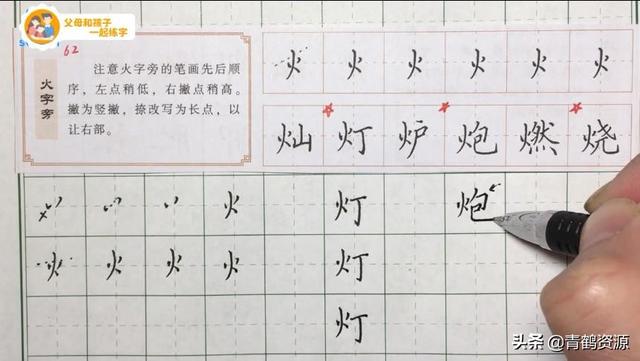 父母和孩子
一起练字
62
火字旁
注意火字旁的笔画先后顺
序，左点稍低，右撇点稍高。
撇为竖撇，捺改写为长点，以
让右部。
火 火 火 火 火 火
灿 灯 炉 炮 燃 烧
火 灯 炮
火 火 火 火 灯
灯
头条 @青鹤资源